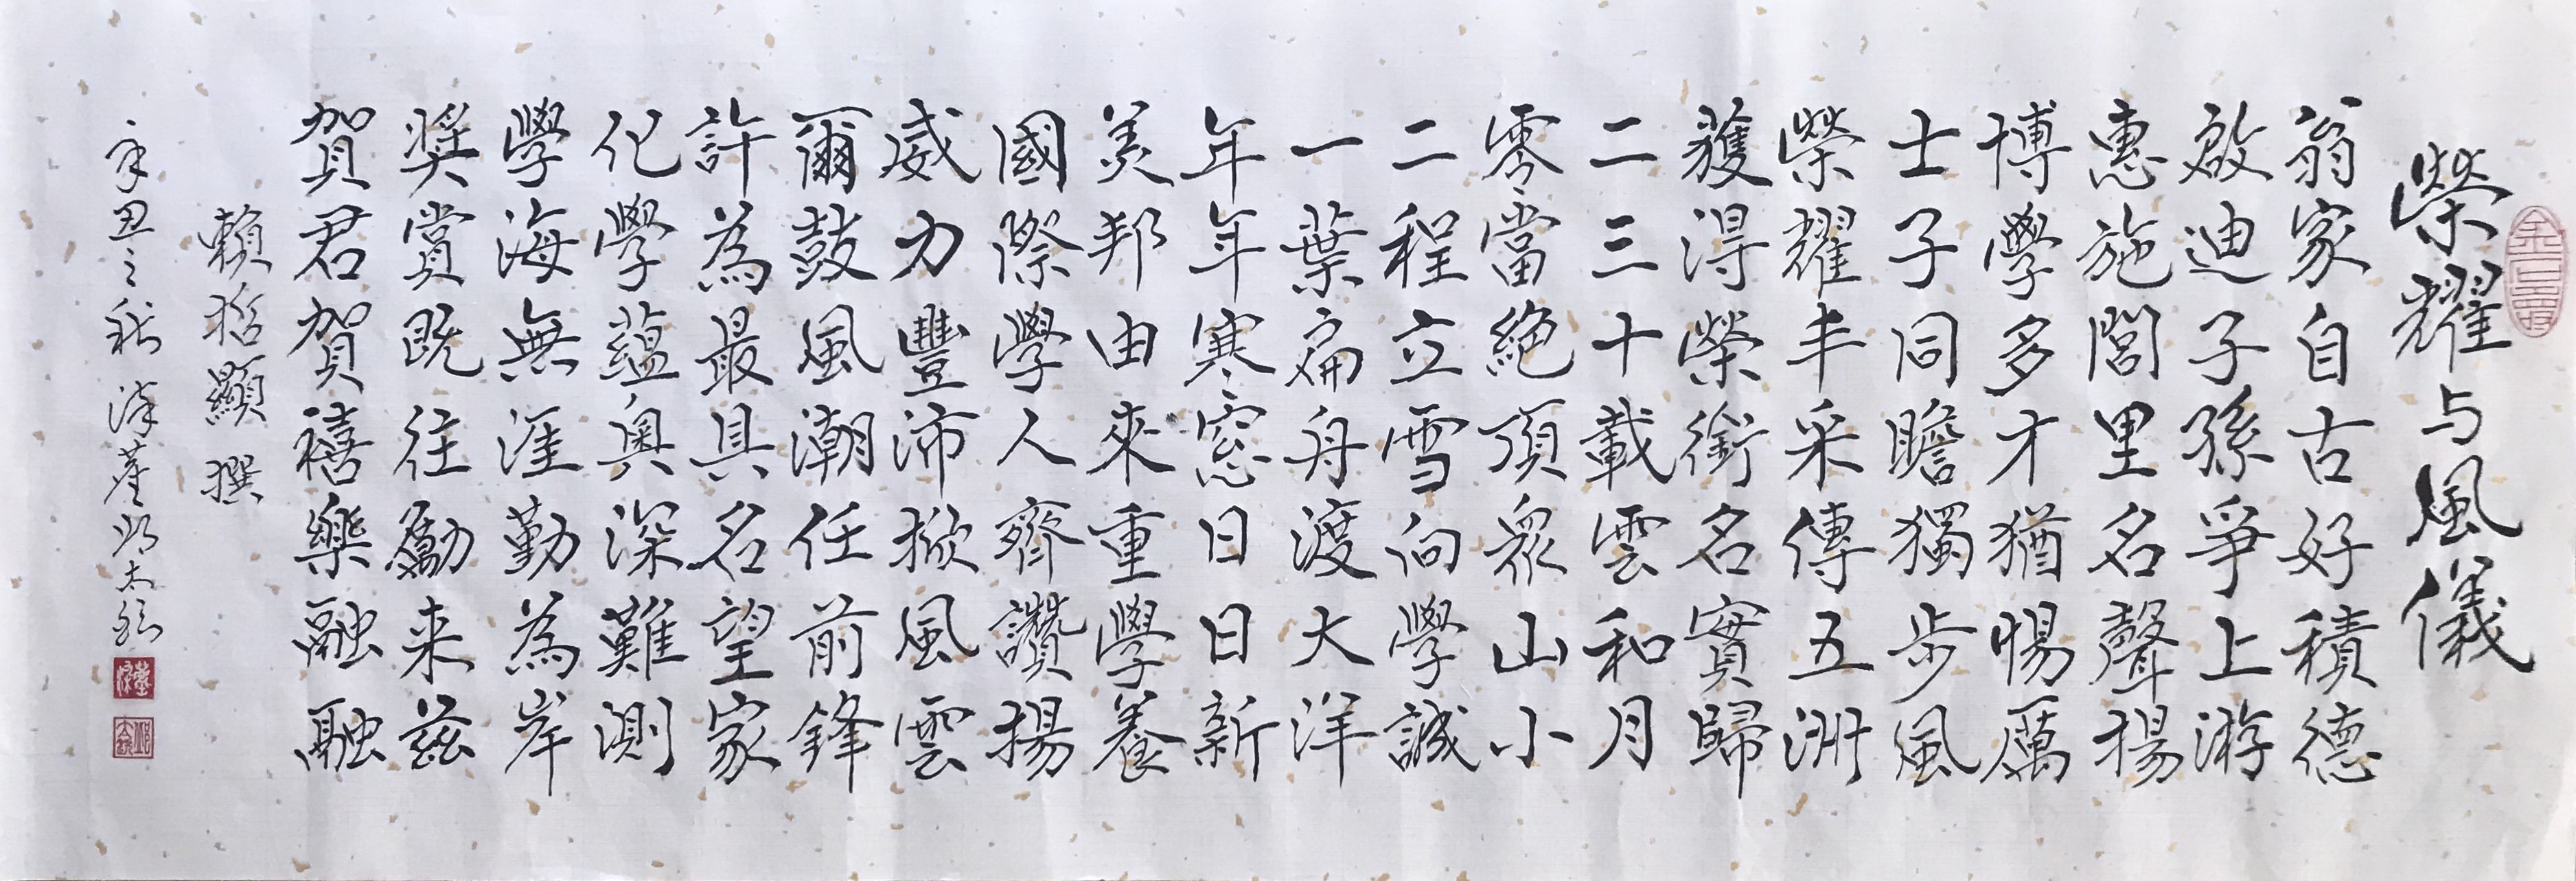 榮耀与風儀
翁家自古好積德
啟迪子孫爭上游
惠施閭里名聲揚
博學多才猶惕厲
士子同瞻獨步風
榮耀丰采傳五洲
獲得榮銜名實歸
二三十載雲和月
零當絕頂眾山小
二程立雪向學誠
一葉扁舟渡大洋
年年寒窓日日新
美邦由來重學養
國際學人齊讚揚
威力豐沛掀風雲
爾鼓風潮任前鋒
許為最具名望家
化學蘊奧深難測
學海無涯勤為岸
奬賞既往勵来茲
賀君賀禧樂融融
賴哲顯 撰
辛丑之秋